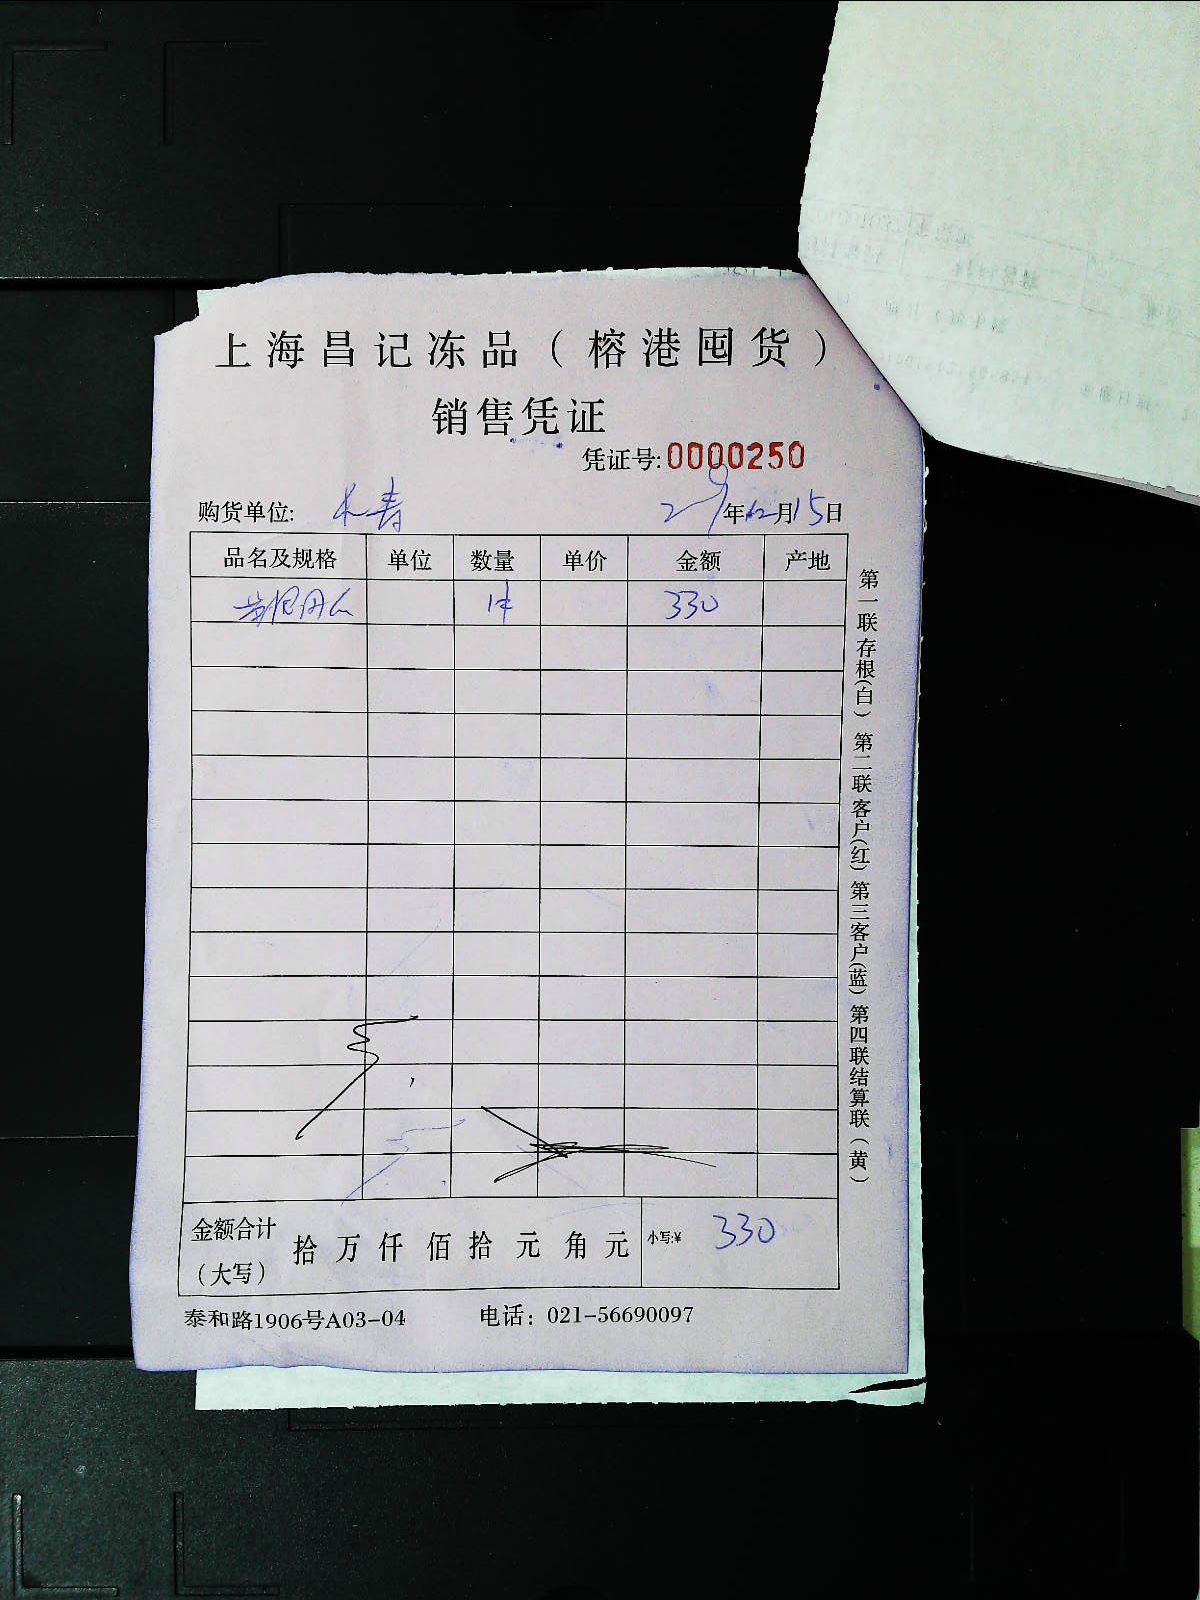 上海昌记冻品（榕港囤货）
销售凭证
凭证号:0000250
购货单位: 年12月15日
品名及规格 单位 数量 单价 金额 产地
1件 330
金额合计（大写） 拾 万 仟 佰 拾 元 角 元 小写:¥ 330
泰和路1906号A03-04 电话：021-56690097
第一联存根(白) 第二联客户(红) 第三客户(蓝) 第四联结算联(黄)